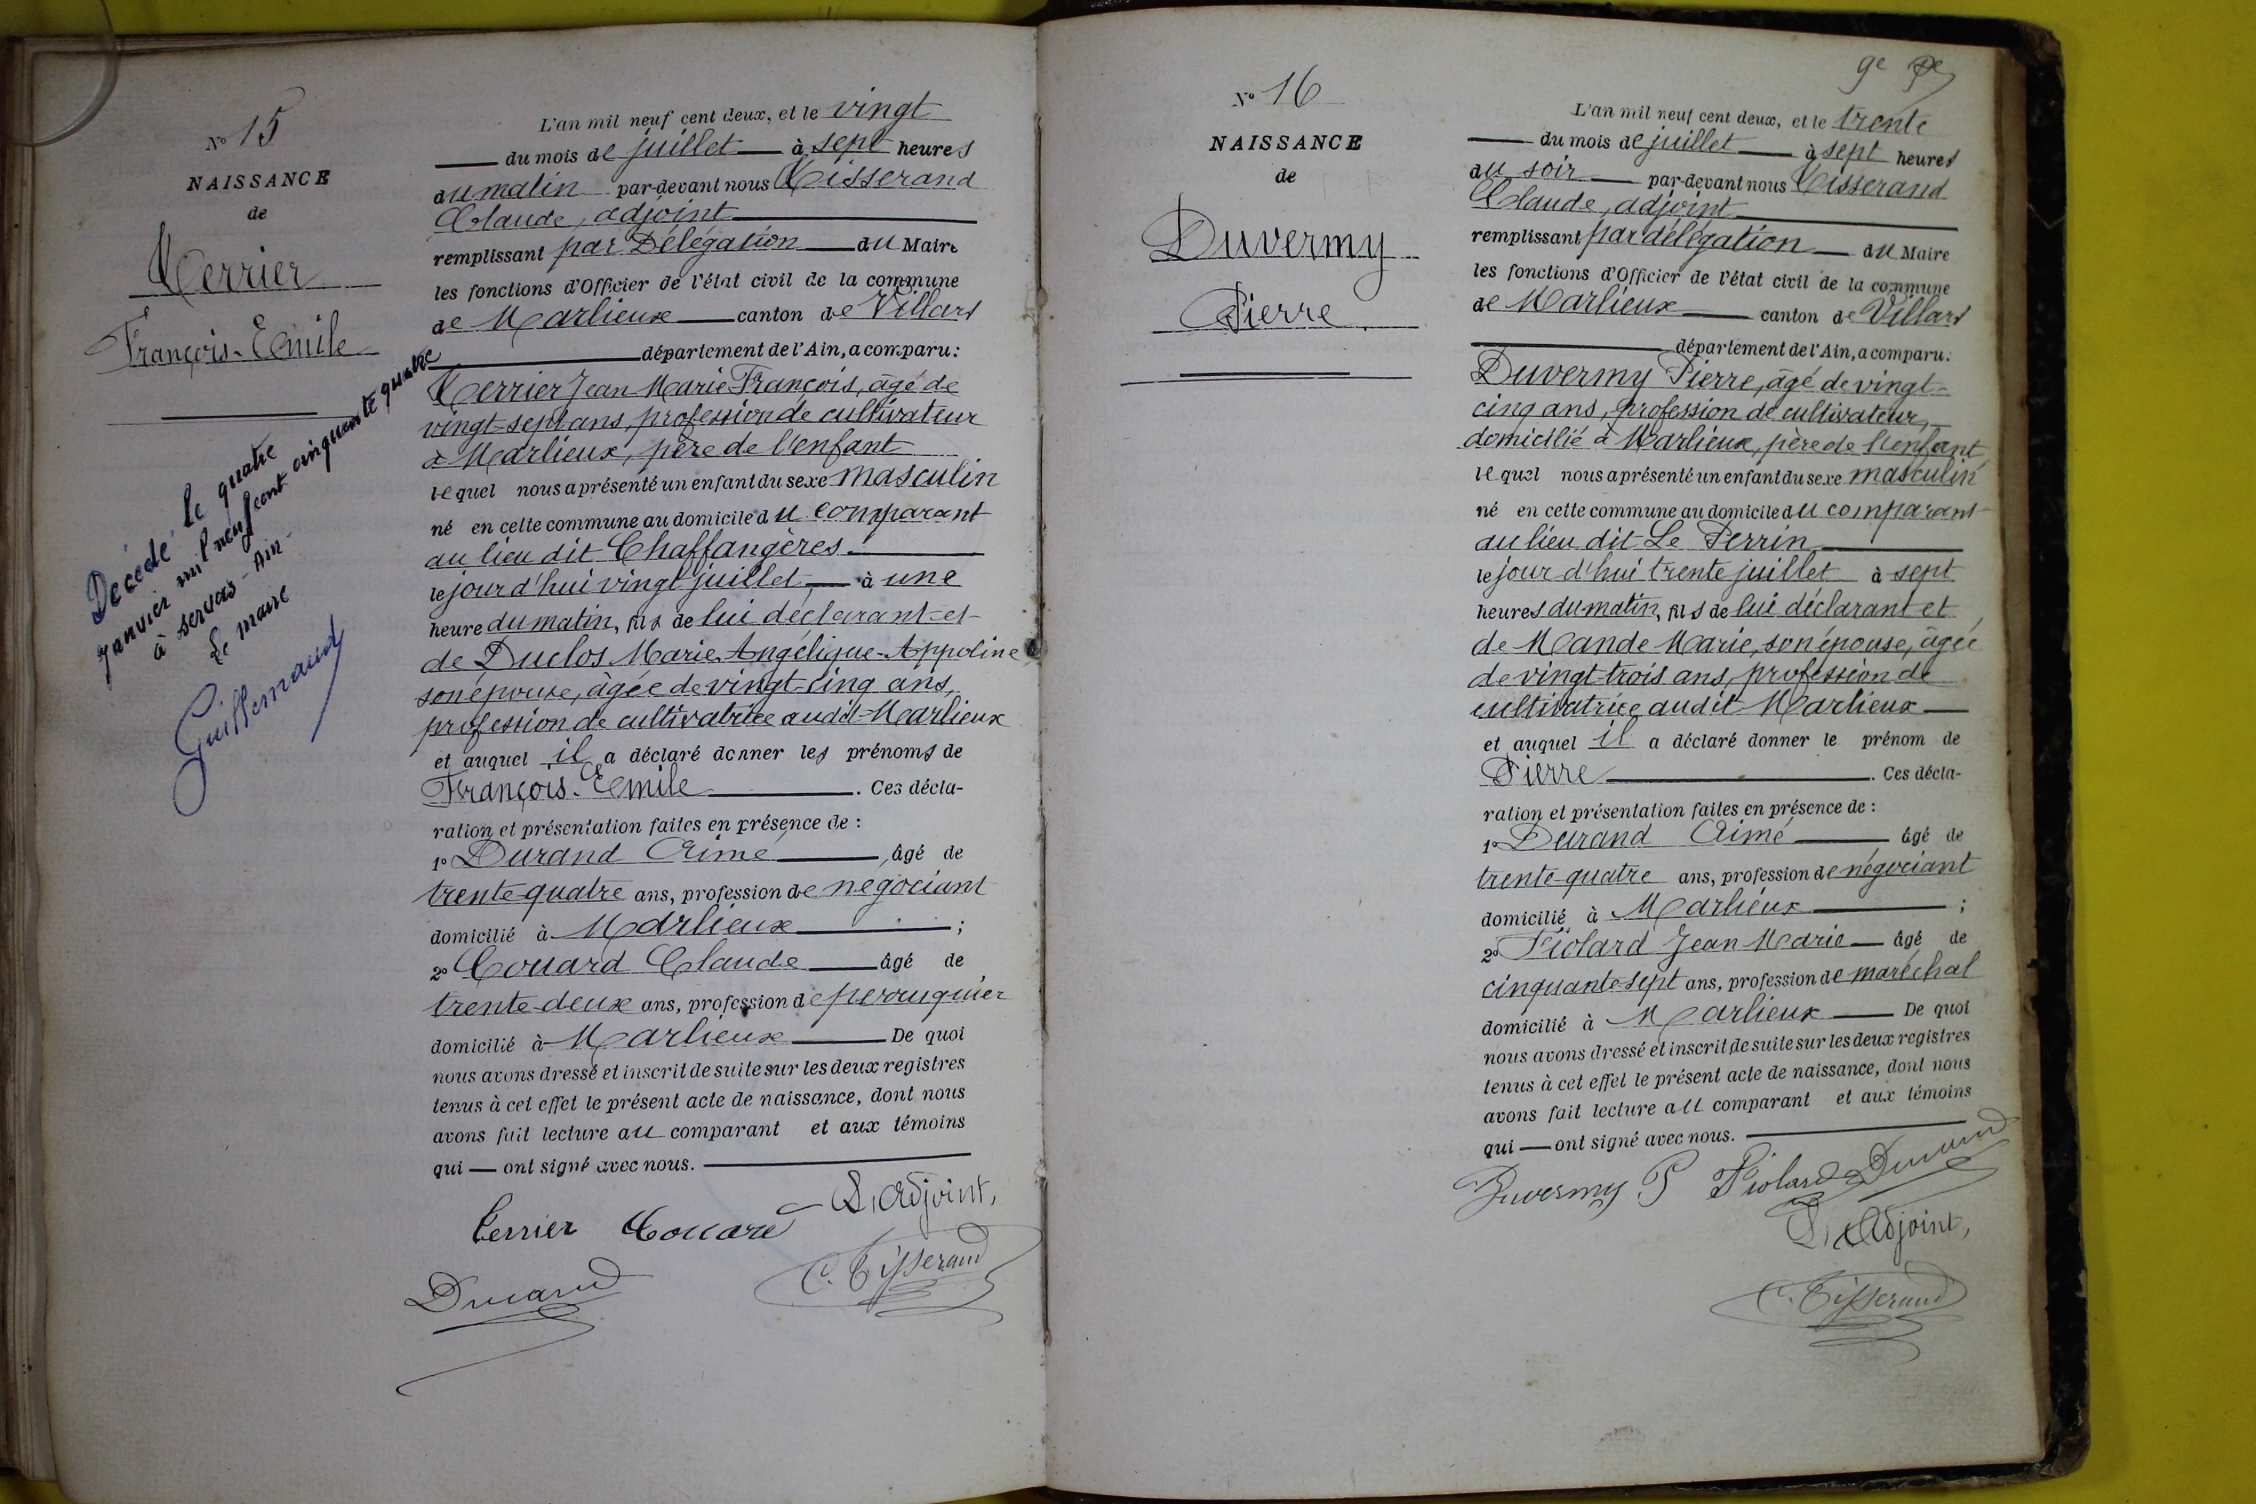 Nº 15
NAISSANCE
de
Terrier
François-Emile
Décédé le quatre
janvier mil neuf cent cinquante quatre
à servas - Ain -
Le maire
Guillemaud
L'an mil neuf cent deux, et le vingt
du mois de juillet à sept heures
du matin par-devant nous Tisserand
Claude, adjoint
remplissant par Délégation du Maire
les fonctions d'Officier de l'état civil de la commune
de Marlieux canton de Villars
département de l'Ain, a comparu:
Terrier Jean Marie François, âgé de
vingt-sept ans, profession de cultivateur
à Marlieux, père de l'enfant
lequel nous a présenté un enfant du sexe masculin
né en cette commune au domicile du comparant
au lieu dit Chaffangères
le jour d'hui vingt juillet à une
heure du matin, fils de lui déclarant et
de Duclos Marie Angélique-Appoline
son épouse, âgée de vingt-cinq ans,
profession de cultivatrice audit Marlieux
et auquel il a déclaré donner les prénoms de
François-Emile. Ces décla-
ration et présentation faites en présence de :
1º Durand Aimé, âgé de
trente-quatre ans, profession de négociant
domicilié à Marlieux ;
2º Couard Claude âgé de
trente-deux ans, profession de perruquier
domicilié à Marlieux De quoi
nous avons dressé et inscrit de suite sur les deux registres
tenus à cet effet le présent acte de naissance, dont nous
avons fait lecture au comparant et aux témoins
qui ont signé avec nous.
Terrier Couard L'Adjoint,
Durand C. Tisserand
9e
Nº 16
NAISSANCE
de
Duvermy
Pierre
L'an mil neuf cent deux, et le trente
du mois de juillet à sept heures
du soir par-devant nous Tisserand
Claude, adjoint
remplissant par délégation du Maire
les fonctions d'Officier de l'état civil de la commune
de Marlieux canton de Villars
département de l'Ain, a comparu:
Duvermy Pierre, âgé de vingt-
cinq ans, profession de cultivateur,
domicilié à Marlieux, père de l'enfant
lequel nous a présenté un enfant du sexe masculin
né en cette commune au domicile du comparant
au lieu dit Le Perrin
le jour d'hui trente juillet à sept
heures du matin, fils de lui déclarant et
de Mande Marie, son épouse, âgée
de vingt-trois ans, profession de
cultivatrice audit Marlieux
et auquel il a déclaré donner le prénom de
Pierre. Ces décla-
ration et présentation faites en présence de :
1º Durand Aimé âgé de
trente-quatre ans, profession de négociant
domicilié à Marlieux ;
2º Piolard Jean Marie âgé de
cinquante-sept ans, profession de maréchal
domicilié à Marlieux De quoi
nous avons dressé et inscrit de suite sur les deux registres
tenus à cet effet le présent acte de naissance, dont nous
avons fait lecture au comparant et aux témoins
qui ont signé avec nous.
Duvermy P Piolard Durand
L'Adjoint,
C. Tisserand